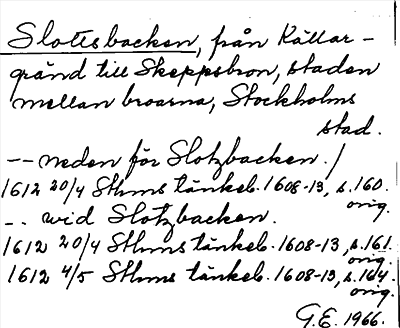 Slottsbacken, från Källar-
gränd till Skeppsbron, staden
mellan broarna, Stockholms
stad.
-- neden för Slotzbacken./
1612 20/4 Sthms tänkeb. 1608-13, s. 160.
orig.
-- wid Slotzbacken.
1612 20/4 Sthms tänkeb. 1608-13, s. 161.
orig.
1612 4/5 Sthms tänkeb. 1608-13, s. 164.
orig.
G.E. 1966.